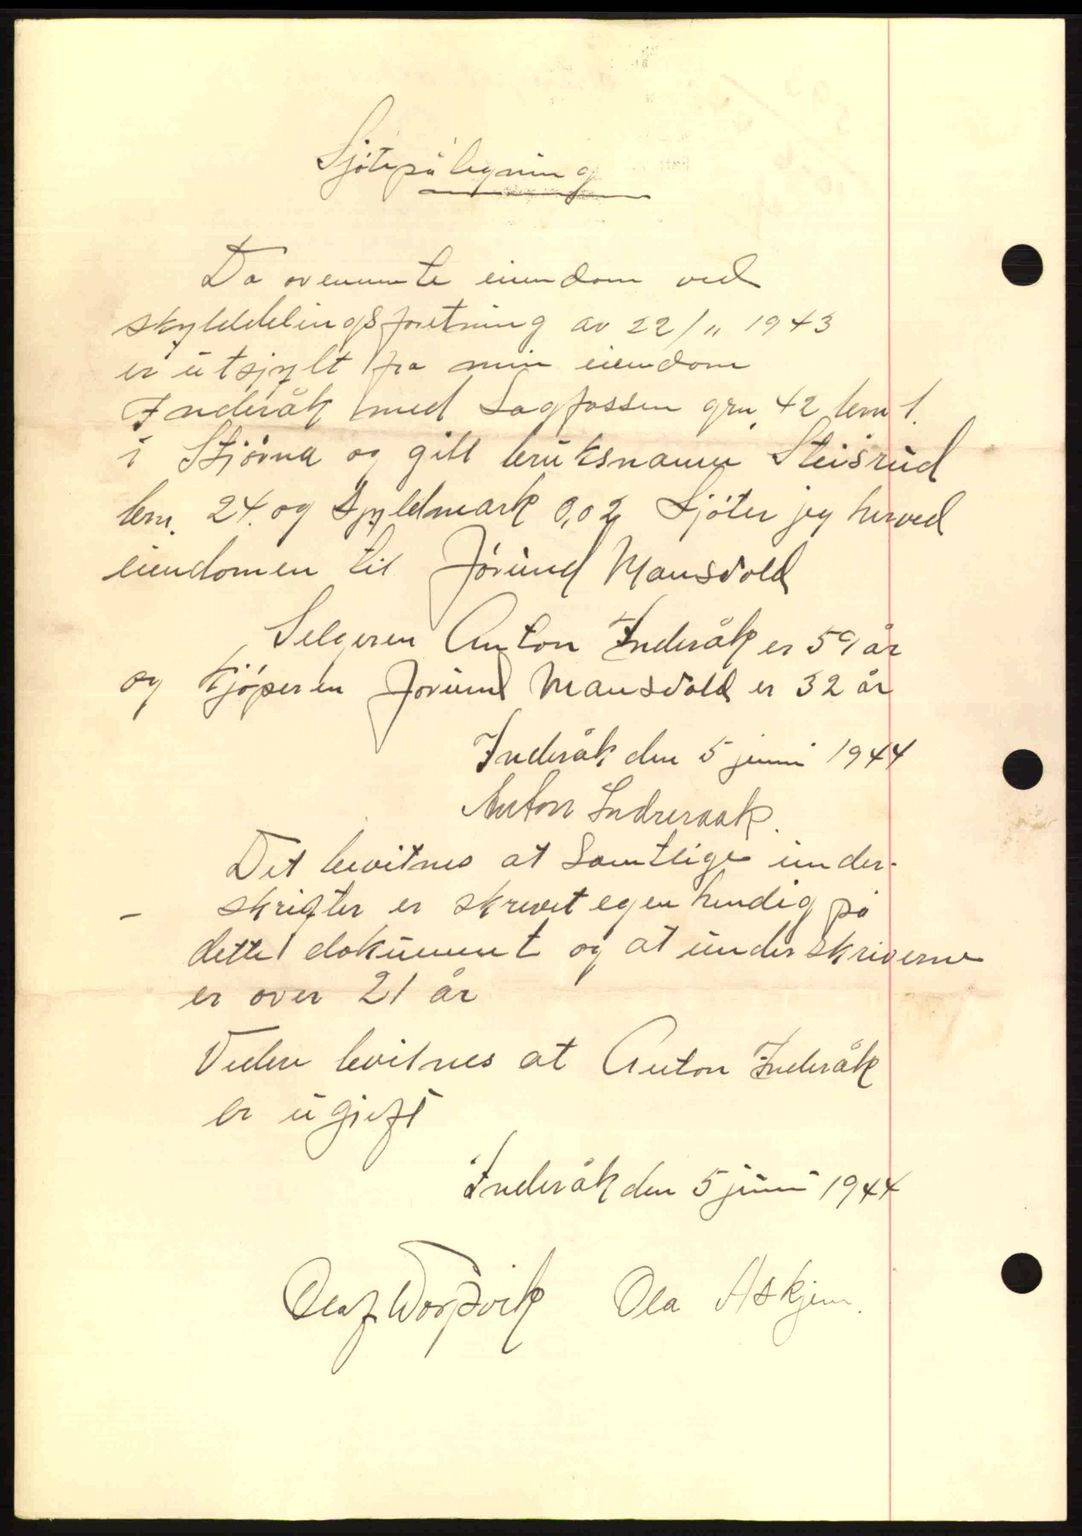 Sjötepåtegning
Da ovennemte eiendom ved
skylddelingsforretning av 22/11 1943
er utsjylt fra min eiendom
Inderåk med Sagfossen grn. 42 brn 1.
i Stjörna og gitt bruksnamn Steisrud
brn. 24. og Sjyldmark 0,02 Sjöter jeg herved
eiendomen til Jörund Mansvold
Selgeren Anton Inderåk er 59 år
og kjöperen Jorund Mansvold er 32 år
Inderåk den 5 juni 1944
Anton Indreraak.
Det bevitnes at samtlige under-
skrifter er skrevet egenhendig på
dette dokument og at underskriverne
er over 21 år
Videre bevitnes at Anton Inderåk
er ugift
Inderåk den 5 juni 1944
Olaf Ola Askjem.